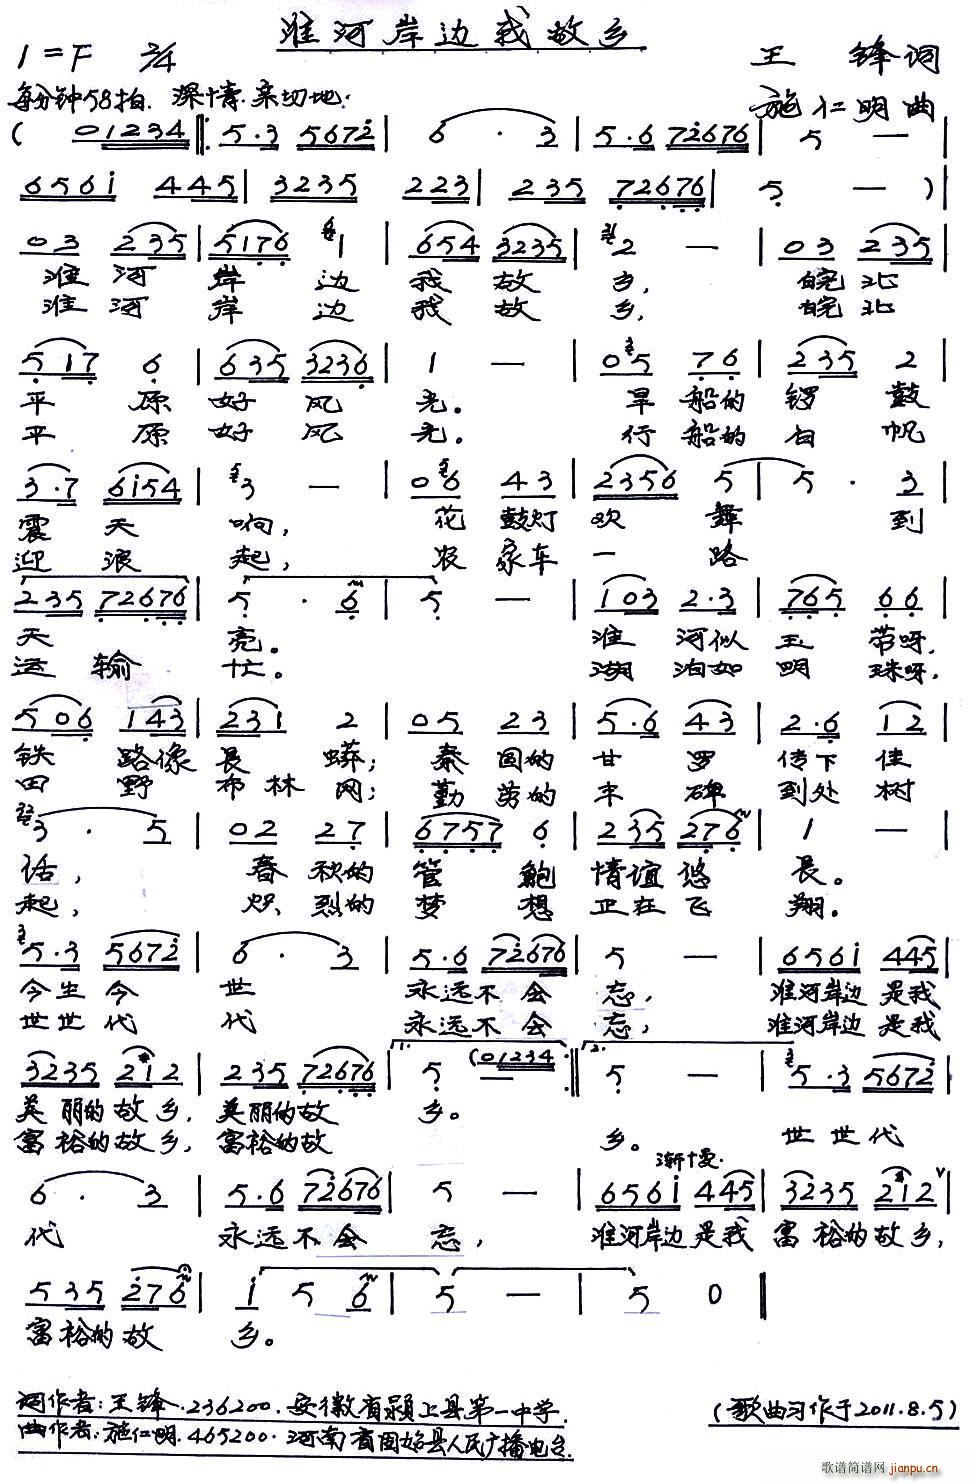 淮河岸边我故乡
1=F 2/4
王 锋词
每分钟58拍. 深情.亲切地.
施仁明曲
( 01234 ‖: 5·3 5672 | 6 · 3 | 5·6 72676 | 5 — |
6561 445 | 3235 223 | 235 72676 | 5 — ) |
03 235 | 5176 1 | 654 3235 | 2 — | 03 235 |
淮河 岸 边 我 故 乡, 皖北
淮河 岸 边 我 故 乡, 皖北
517 6 | 635 3236 | 1 — | 05 76 | 235 2 |
平 原 好 风 光。 旱 船的 锣 鼓
平 原 好 风 光。 行 船的 白 帆
3·7 6154 | 3 — | 06 43 | 2356 5 | 5 · 3 |
震 天 响, 花 鼓灯 欢 舞 到
迎 浪 起, 农 家车 一 路
235 72676 | 5 · 6 | 5 — | 103 2·3 | 765 66 |
天 亮。 淮 河似 玉 带呀,
运 输 忙。 湖 泊如 明 珠呀,
506 143 | 231 2 | 05 23 | 5·6 43 | 2·6 12 |
铁 路像 長 蟒; 秦 国的 甘 罗 传下 佳
田 野 布林 网; 勤 劳的 丰 碑 到处 树
3 · 5 | 02 27 | 6757 6 | 235 276 | 1 — |
话, 春 秋的 管 鲍 情谊 悠 長。
起, 炽 烈的 梦 想 正在 飞 翔。
5·3 5672 | 6 · 3 | 5·6 72676 | 5 — | 6561 445 |
今生 今 世 永远不 会 忘, 淮河岸边 是我
世世 代 代 永远不 会 忘, 淮河岸边 是我
3235 212 | 235 72676 | 1. 5 — (01234 :‖ 2. 5 — | 5·3 5672 |
美丽的 故乡, 美丽的 故 乡。
富裕的 故乡, 富裕的 故 乡。 世世代
渐慢.
6 · 3 | 5·6 72676 | 5 — | 6561 445 | 3235 212 |
代 永远不 会 忘, 淮河岸边是我 富裕的故乡,
535 276 | 1 5 6 | 5 — | 5 0 ‖
富裕的 故 乡。
词作者:王锋.236200.安徽省颍上县第一中学.
(歌曲习作于2011.8.5)
曲作者:施仁明.465200.河南省固始县人民广播电台.
歌谱简谱网
jianpu.cn